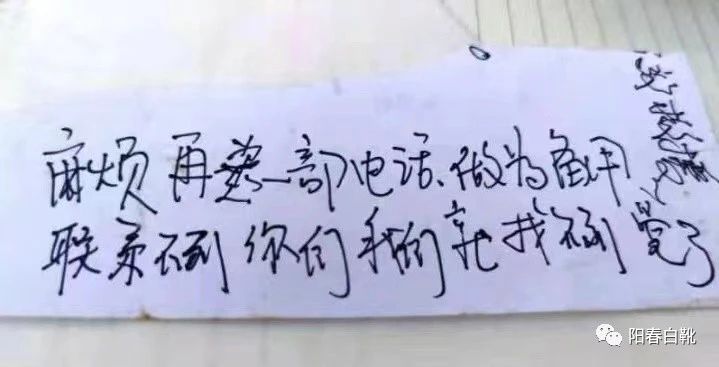 麻烦再一部电话、做为备用
联系不到你们我们就找不到
觉了
阳春白靴